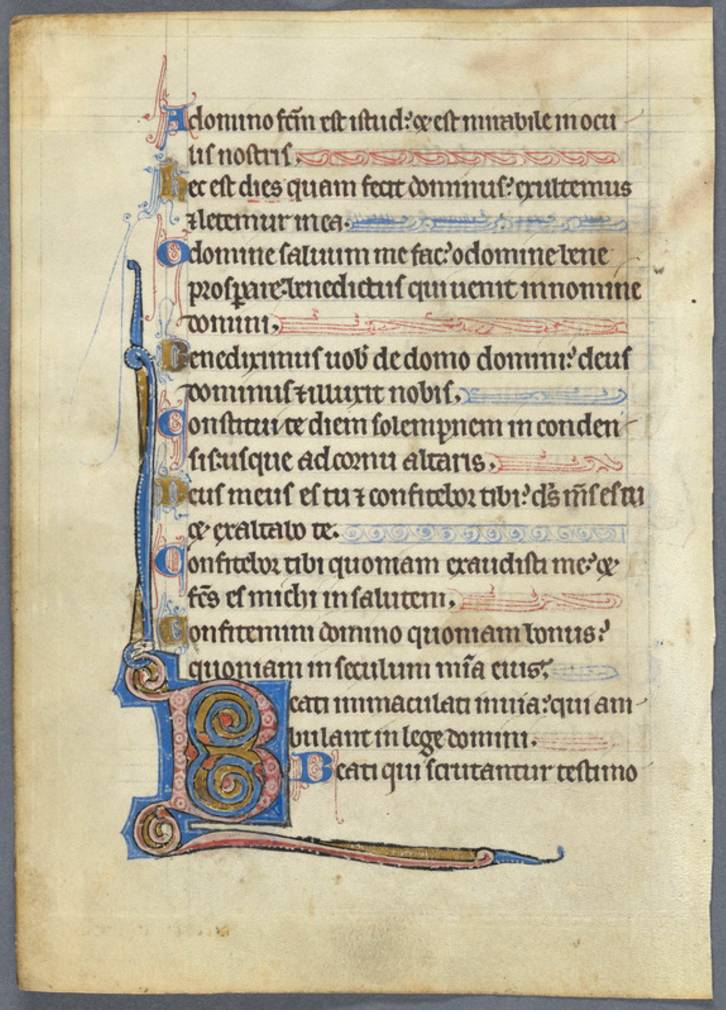 A domino fc̄m est istud: ⁊ est mirabile in ocu
lis nostris.
hec est dies quam fecit dominus: exultemus
⁊ letemur in ea.
O domine saluum me fac: o domine bene
prosꝑare: benedictus qui uenit in nomine
domini.
Benediximus uob̄ de domo domini: deus
dominus ⁊ illuxit nobis.
Constitui te diem solempnem in conden
sis: usque ad cornu altaris.
Deus meus es tu ⁊ confitebor tibi: ds̄ ms̄ es tu
⁊ exaltabo te.
Confitebor tibi quoniam exaudisti me: ⁊
fc̄s es michi in salutem.
Confitemini domino quoniam bonus:
quoniam in seculum mīa eius.
Beati immaculati in uia: qui am
bulant in lege domini.
Beati qui scrutantur testimo